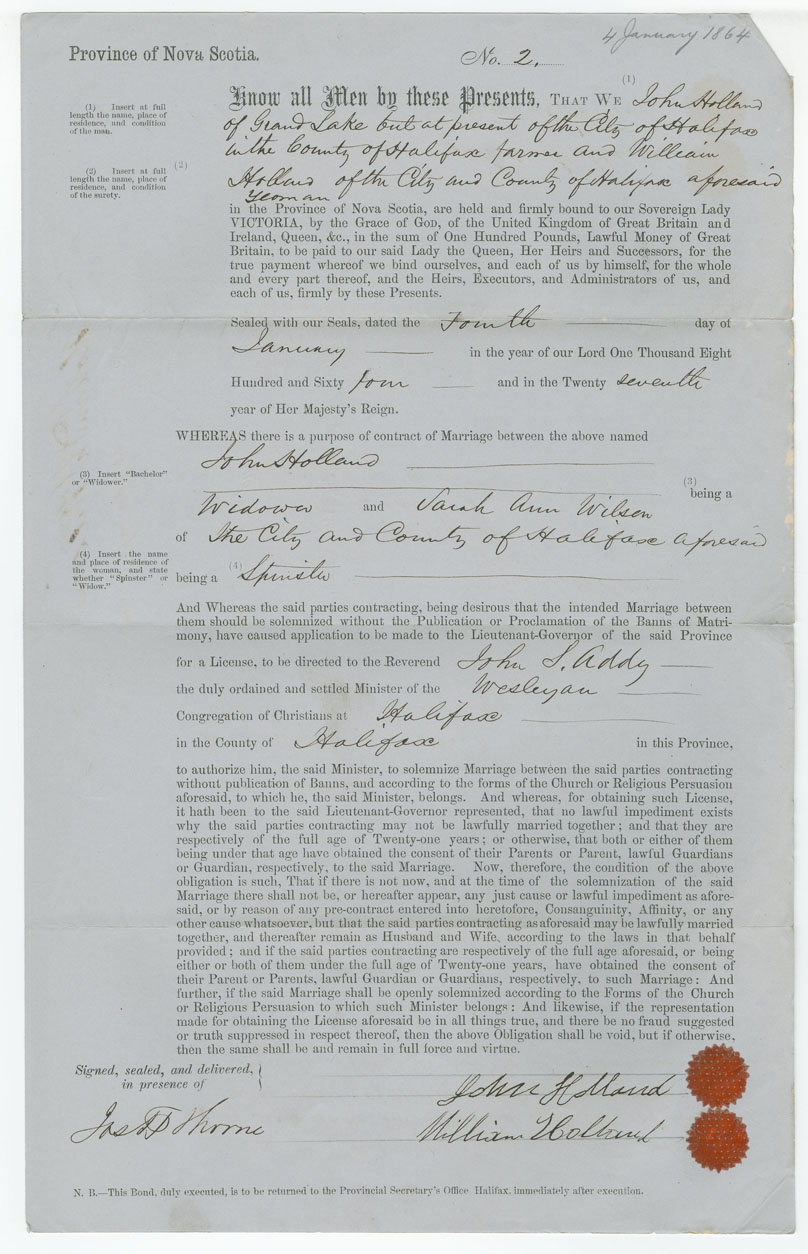 4 January 1864
Province of Nova Scotia.
No. 2.
(1)
Know all Men by these Presents, THAT WE John Holland
(1) Insert at full
length the name, place of
residence, and condition
of the man.
of Grand Lake but at present of the City of Halifax
in the County of Halifax farmer and William
(2) Insert at full
length the name, place of
residence, and condition
of the surety.
(2)
Holland of the City and County of Halifax aforesaid
Yeoman
in the Province of Nova Scotia, are held and firmly bound to our Sovereign Lady
VICTORIA, by the Grace of God, of the United Kingdom of Great Britain and
Ireland, Queen, &c., in the sum of One Hundred Pounds, Lawful Money of Great
Britain, to be paid to our said Lady the Queen, Her Heirs and Successors, for the
true payment whereof we bind ourselves, and each of us by himself, for the whole
and every part thereof, and the Heirs, Executors, and Administrators of us, and
each of us, firmly by these Presents.
Sealed with our Seals, dated the Fourth day of
January in the year of our Lord One Thousand Eight
Hundred and Sixty four and in the Twenty seventh
year of Her Majesty's Reign.
WHEREAS there is a purpose of contract of Marriage between the above named
John Holland
(3) Insert "Bachelor"
or "Widower."
(3)
being a
Widower and Sarah Ann Wilson
of the City and County of Halifax aforesaid
(4) Insert the name
and place of residence of
the woman, and state
whether "Spinster" or
"Widow."
being a (4) Spinster
And Whereas the said parties contracting, being desirous that the intended Marriage between
them should be solemnized without the Publication or Proclamation of the Banns of Matri-
mony, have caused application to be made to the Lieutenant-Governor of the said Province
for a License, to be directed to the Reverend John S. Addy
the duly ordained and settled Minister of the Wesleyan
Congregation of Christians at Halifax
in the County of Halifax in this Province,
to authorize him, the said Minister, to solemnize Marriage between the said parties contracting
without publication of Banns, and according to the forms of the Church or Religious Persuasion
aforesaid, to which he, the said Minister, belongs. And whereas, for obtaining such License,
it hath been to the said Lieutenant-Governor represented, that no lawful impediment exists
why the said parties contracting may not be lawfully married together; and that they are
respectively of the full age of Twenty-one years; or otherwise, that both or either of them
being under that age have obtained the consent of their Parents or Parent, lawful Guardians
or Guardian, respectively, to the said Marriage. Now, therefore, the condition of the above
obligation is such, That if there is not now, and at the time of the solemnization of the said
Marriage there shall not be, or hereafter appear, any just cause or lawful impediment as afore-
said, or by reason of any pre-contract entered into heretofore, Consanguinity, Affinity, or any
other cause whatsoever, but that the said parties contracting as aforesaid may be lawfully married
together, and thereafter remain as Husband and Wife, according to the laws in that behalf
provided; and if the said parties contracting are respectively of the full age aforesaid, or being
either or both of them under the full age of Twenty-one years, have obtained the consent of
their Parent or Parents, lawful Guardian or Guardians, respectively, to such Marriage: And
further, if the said Marriage shall be openly solemnized according to the Forms of the Church
or Religious Persuasion to which such Minister belongs: And likewise, if the representation
made for obtaining the License aforesaid be in all things true, and there be no fraud suggested
or truth suppressed in respect thereof, then the above Obligation shall be void, but if otherwise,
then the same shall be and remain in full force and virtue.
Signed, sealed, and delivered,
in presence of
John Holland
Thorne
William Holland
N. B.—This Bond, duly executed, is to be returned to the Provincial Secretary's Office Halifax, immediately after execution.